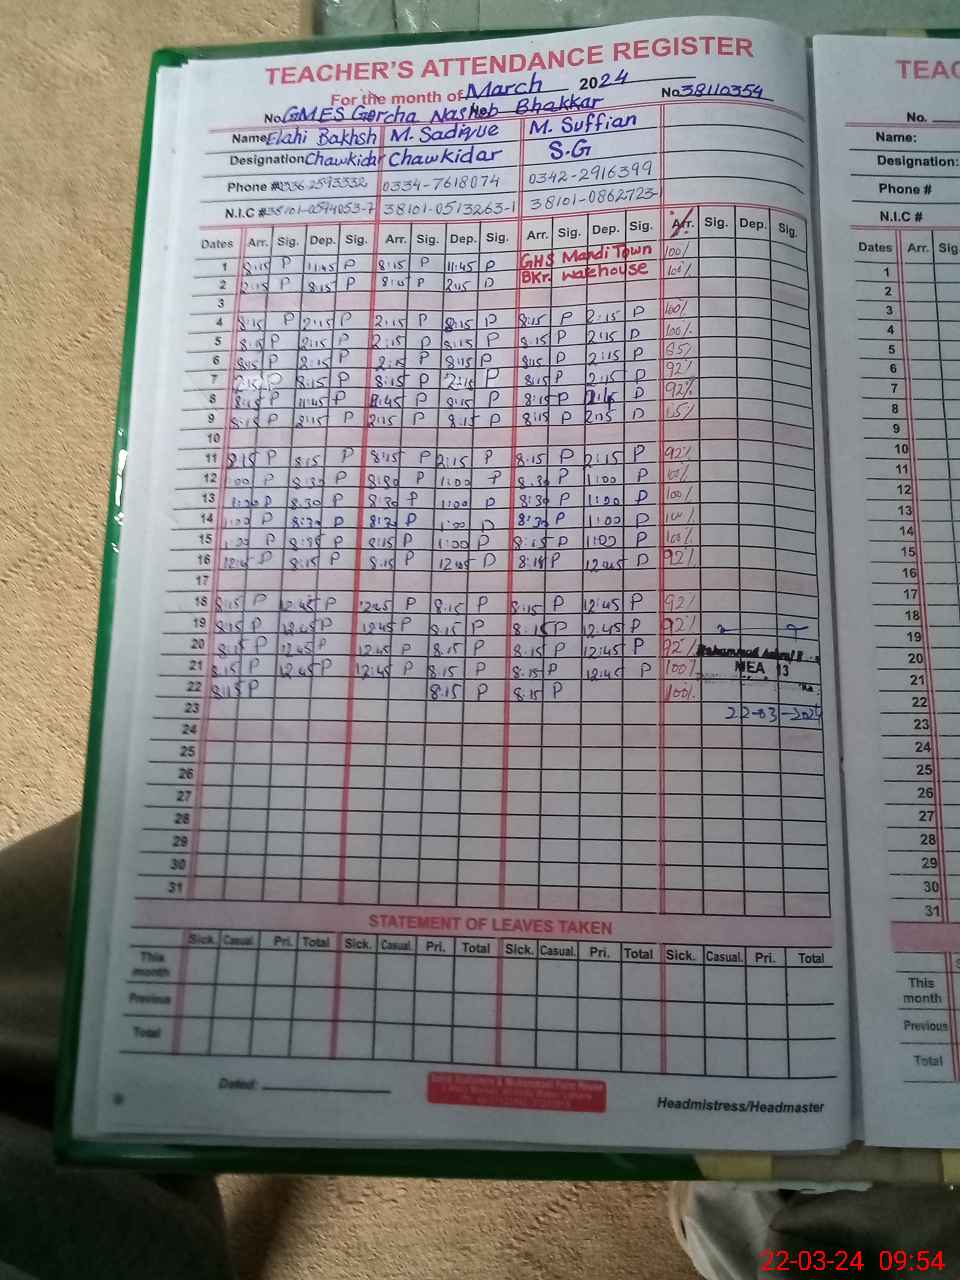 TEACHER'S ATTENDANCE REGISTER
For the month of March 2024
No. GMES Gorcha Nasheb Bhakkar No 38110354
Name Elahi Bakhsh M. Sadique M. Suffian
Designation Chawkidar Chawkidar S.G
Phone # 0336-2593332 0334-7618074 0342-2916399
N.I.C # 38101-0594053-7 38101-0513263-1 38101-0862723-1
Dates Arr. Sig. Dep. Sig. Arr. Sig. Dep. Sig. Arr. Sig. Dep. Sig. Arr. Sig. Dep. Sig.
1 8:15 P 11:45 P 8:15 P 11:45 P GHS Mandi Town 100%
2 2:15 P 8:15 P 8:15 P 2:45 P BKr. warehouse 100%
3
4 8:15 P 2:15 P 2:15 P 8:15 P 8:15 P 2:15 P 100%
5 8:15 P 2:15 P 2:15 P 8:15 P 8:15 P 2:15 P 100%
6 8:15 P 2:15 P 2:15 P 8:15 P 8:15 P 2:15 P 85%
7 2:15 P 8:15 P 8:15 P 2:15 P 8:15 P 2:15 P 92%
8 8:15 P 11:45 P 11:45 P 8:15 P 8:15 P P 92%
9 8:15 P 2:15 P 2:15 P 8:15 P 8:15 P 2:15 P
10
11 8:15 P 8:15 P 8:15 P 2:15 P 8:15 P 2:15 P 92%
12 1:00 P 8:30 P 8:30 P 1:00 P 8:30 P 1:00 P 100%
13 1:00 P 8:30 P 8:30 P 1:00 P 8:30 P 1:00 P 100%
14 1:00 P 8:30 P 8:30 P 1:00 P 8:30 P 1:00 P 100%
15 1:00 P 8:15 P 8:15 P 1:00 P 8:15 P 1:00 P 100%
16 12:45 P 8:15 P 8:15 P 12:45 P 8:15 P 12:45 P 92%
17
18 8:15 P 12:45 P 12:45 P 8:15 P 8:15 P 12:45 P 92%
19 8:15 P 12:45 P 12:45 P 8:15 P 8:15 P 12:45 P 92%
20 8:15 P 12:45 P 12:45 P 8:15 P 8:15 P 12:45 P 92% Muhammad
21 8:15 P 12:45 P 12:45 P 8:15 P 8:15 P 12:45 P 100% MEA 13
22 8:15 P 8:15 P 8:15 P 100%
23 22-03-2024
24
25
26
27
28
29
30
31
STATEMENT OF LEAVES TAKEN
Sick. Casual. Pri. Total Sick. Casual. Pri. Total Sick. Casual. Pri. Total Sick. Casual. Pri. Total
This month
Previous
Total
Dated:
Headmistress/Headmaster
TEAC
No.
Name:
Designation:
Phone #
N.I.C #
Dates Arr. Sig
1
2
3
4
5
6
7
8
9
10
11
12
13
14
15
16
17
18
19
20
21
22
23
24
25
26
27
28
29
30
31
This month
Previous
Total
22-03-24 09:54